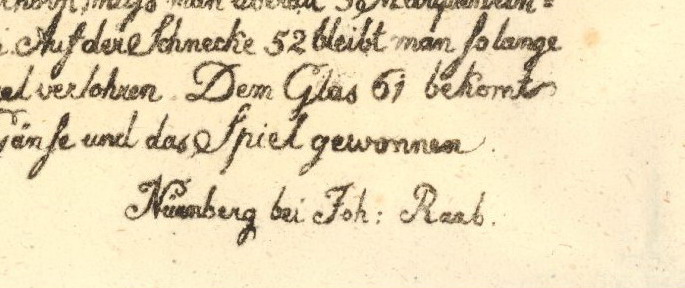 muß man überall
Auf der Schnecke 52 bleibt man so lange
verlohren. Dem Glas 61 bekomt
Gänse und das Spiel gewonnen.
Nürnberg bei Joh: Raab.